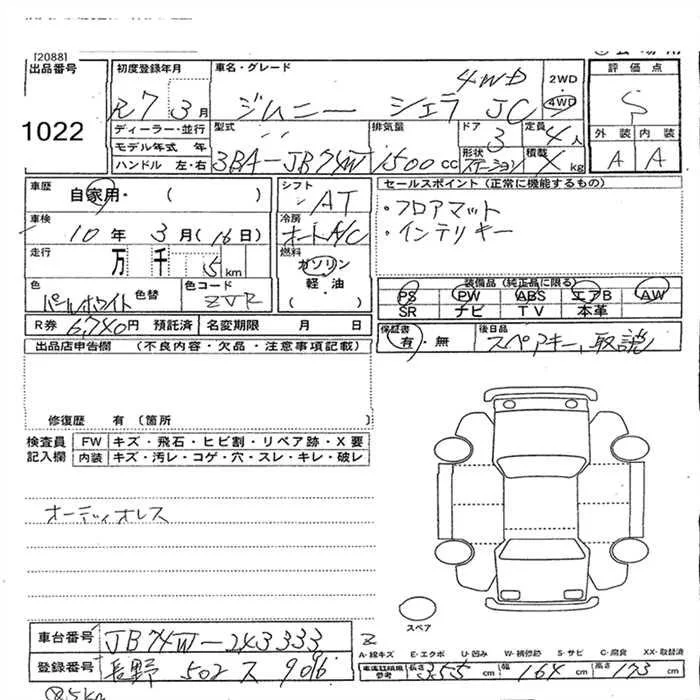 [2088]
出品番号 初度登録年月 車名・グレード 評価点
1022
R7 3月 ジムニー シエラ JC 4WD 2WD 4WD S
ディーラー・並行 型式 排気量 ドア 定員 外装 内装
モデル年式 年 3 4人
ハンドル 左・右 3BA-JB74W 1500cc 形状 ステーション 積載 kg A A
車歴 自家用・( ) シフト AT セールスポイント(正常に機能するもの)
・フロアマット
・インテリキー
車検 10年 3月(16日) 冷房 オートA/C
走行 万 千 5km 燃料 ガソリン
軽・油
・( )
色 パールホワイト 色替 色コード ZVR
装備品(純正品に限る)
PS PW ABS エアB AW
SR ナビ TV 本革
R券 6,740円 預託済 名変期限 月 日
保証書 有・無 後日品 スペアキー, 取説
出品店申告欄 (不良内容・欠品・注意事項記載)
修復歴 有 〔箇所 〕
検査員記入欄 FW キズ・飛石・ヒビ割・リペア跡・X要
内装 キズ・汚レ・コゲ・穴・スレ・キレ・破レ
オーディオレス
スペア
車台番号 JB74W-243333
登録番号 長野 502 ス 9096
A-線キズ E-エクボ U-凹み W-補修跡 S-サビ C-腐食 XX-取替済
長さ 355cm 幅 164cm 高さ 173cm